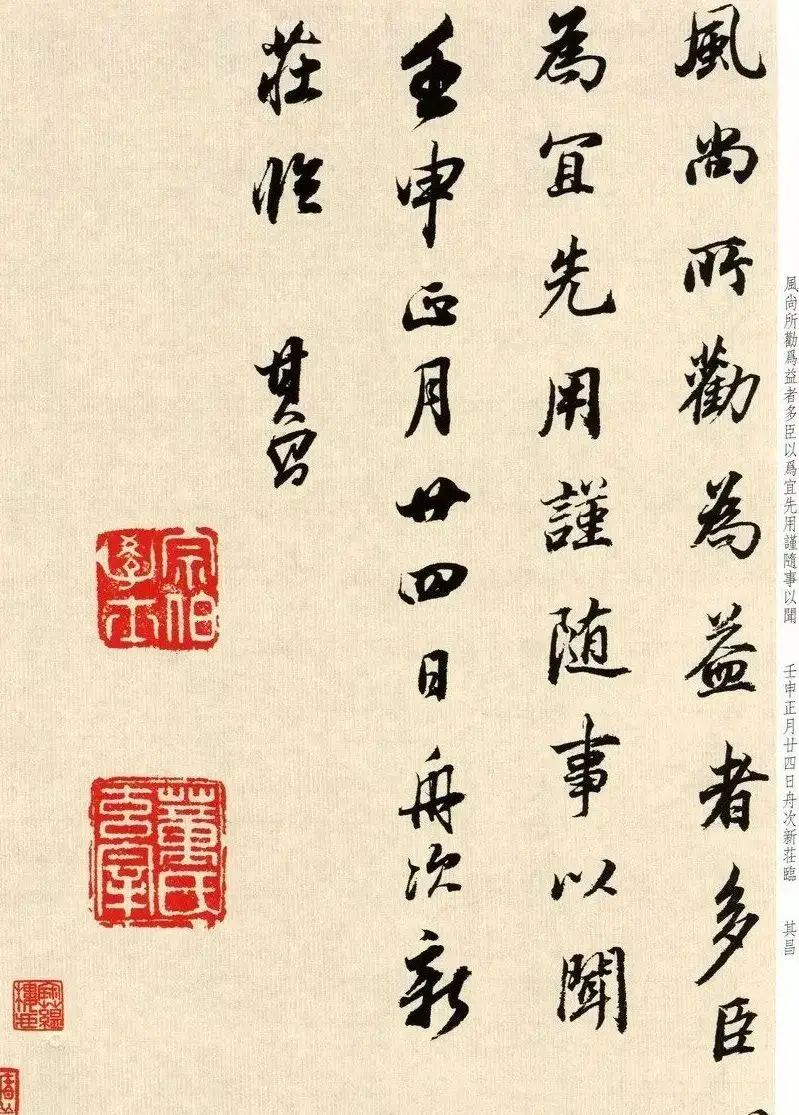 風尚所勸為益者多臣
為宜先用謹隨事以聞
壬申正月廿四日舟次新
莊臨 其昌
宗伯學士
董氏玄宰
風尚所勸爲益者多臣以爲宜先用謹隨事以聞 壬申正月廿四日舟次新莊臨 其昌